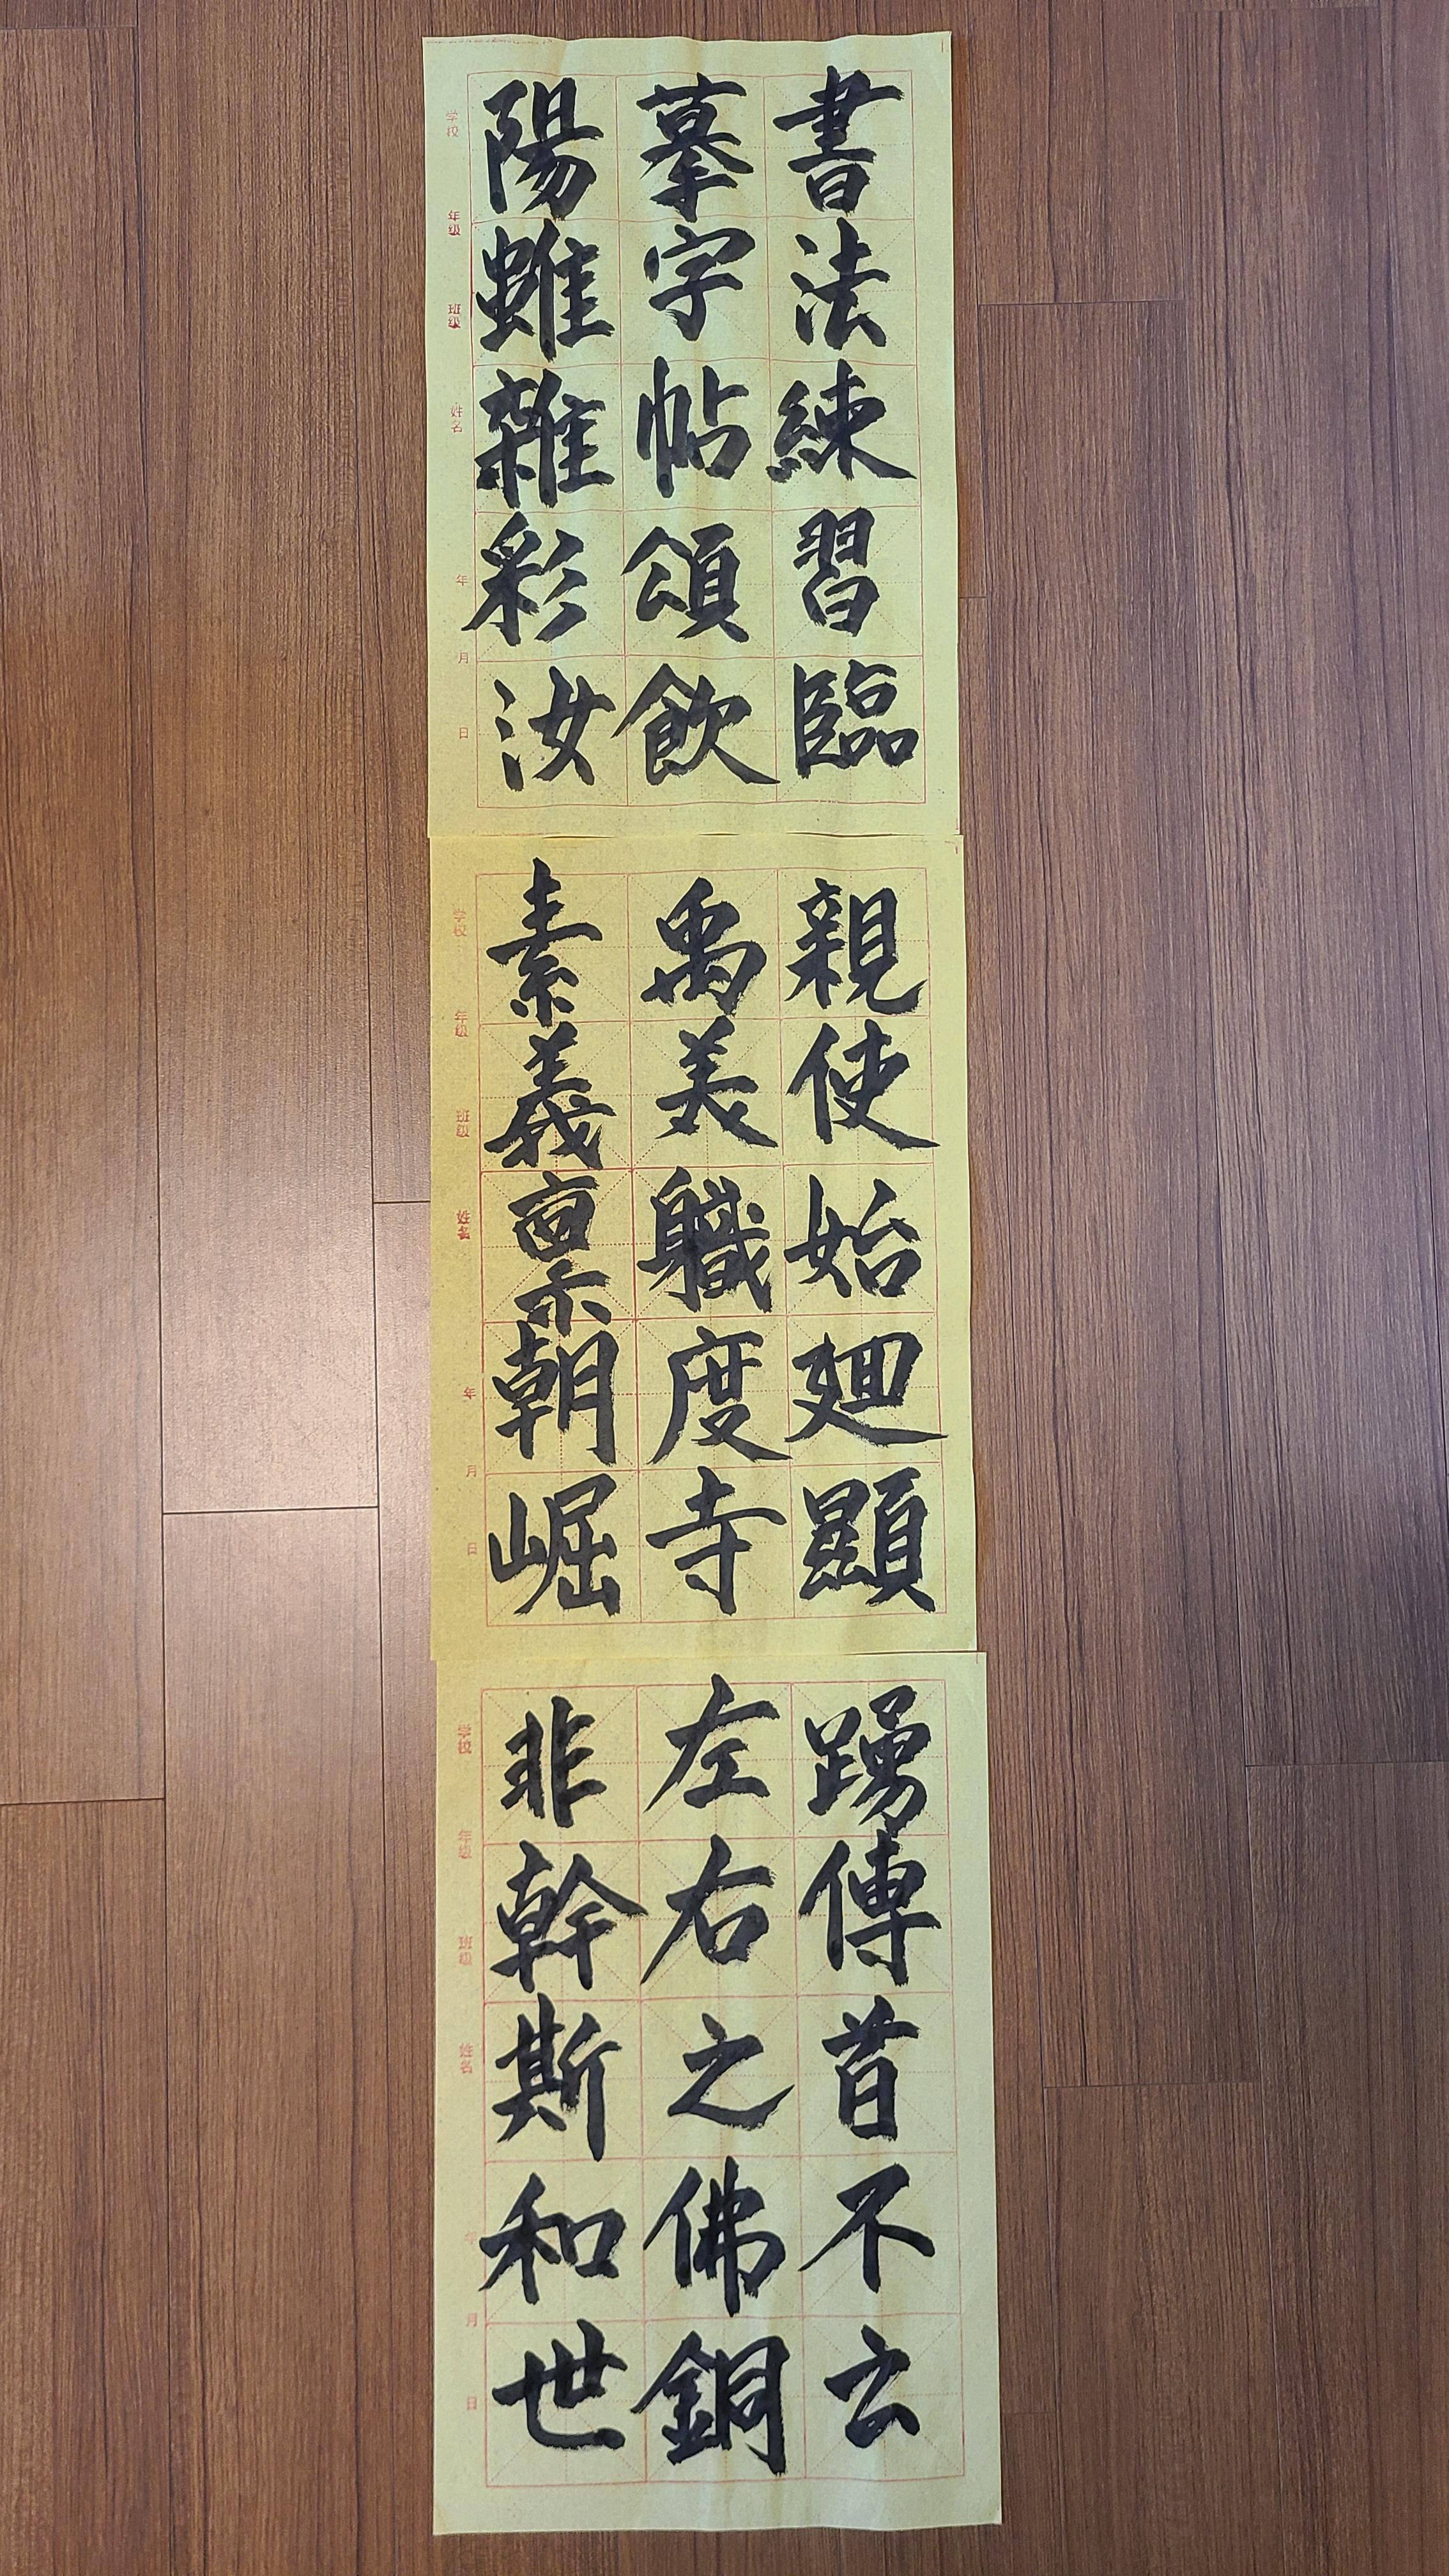 書法練習臨
摹字帖頌飲
陽雖雜彩汝
学校 年级 班级 姓名 年 月 日
親使始廻顯
禹美軄度寺
素義禀朝崛
学校 年级 班级 姓名 年 月 日
踴傳首不云
左右之佛銅
非幹斯和世
学校 年级 班级 姓名 年 月 日